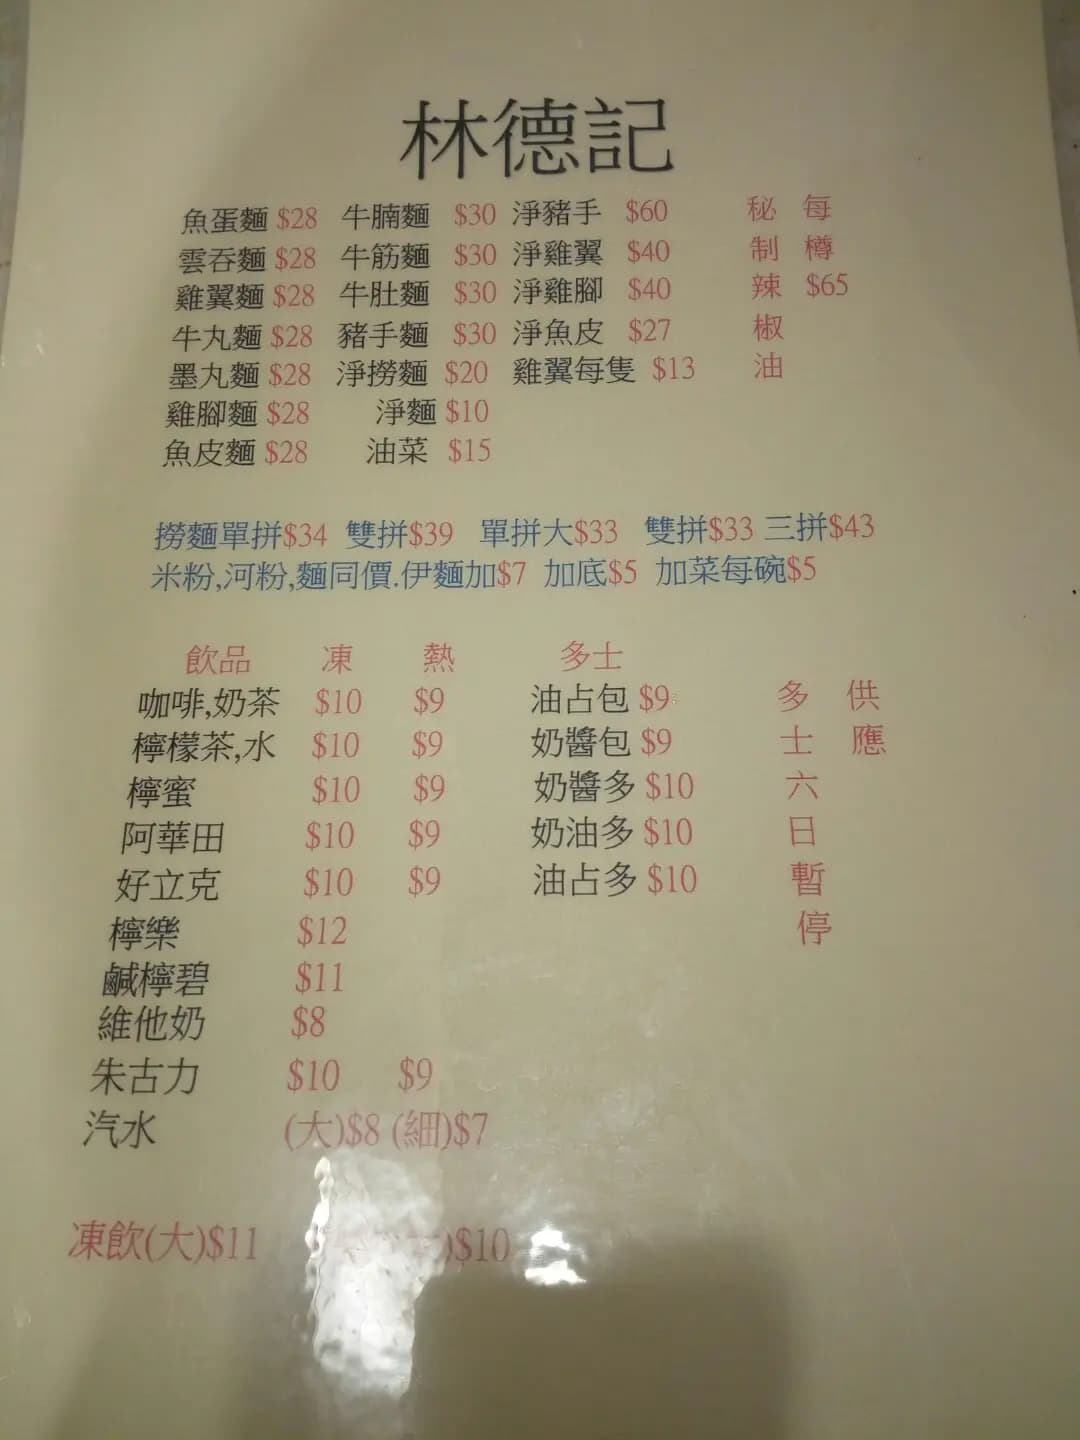 林德記
魚蛋麵 $28 牛腩麵 $30 淨豬手 $60
雲吞麵 $28 牛筋麵 $30 淨雞翼 $40
雞翼麵 $28 牛肚麵 $30 淨雞腳 $40
牛丸麵 $28 豬手麵 $30 淨魚皮 $27
墨丸麵 $28 淨撈麵 $20 雞翼每隻 $13
雞腳麵 $28 淨麵 $10
魚皮麵 $28 油菜 $15
秘制辣椒油
每樽 $65
撈麵單拼$34 雙拼$39 單拼大$33 雙拼$33 三拼$43
米粉,河粉,麵同價.伊麵加$7 加底$5 加菜每碗$5
飲品 凍 熱 多士
咖啡,奶茶 $10 $9 油占包 $9
檸檬茶,水 $10 $9 奶醬包 $9
檸蜜 $10 $9 奶醬多 $10
阿華田 $10 $9 奶油多 $10
好立克 $10 $9 油占多 $10
檸樂 $12
鹹檸碧 $11
維他奶 $8
朱古力 $10 $9
汽水 (大)$8 (細)$7
多士六日暫停
供應
凍飲(大)$11 $10